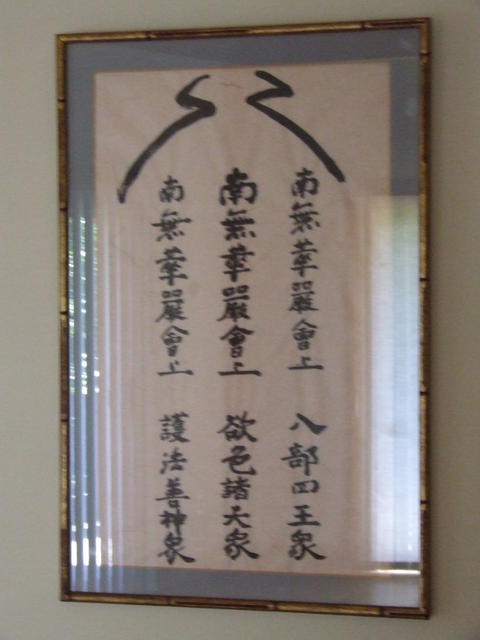 南無華嚴會上 八部四王衆
南無華嚴會上 欲色諸天衆
南無華嚴會上 護法善神衆